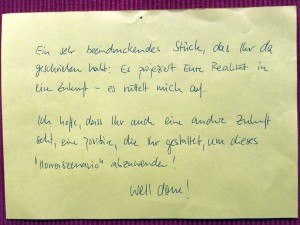 Ein sehr beeindruckendes Stück, das Ihr da
geschrieben habt: Es projeziert Eure Realität in
die Zukunft – es rüttelt mich auf.
Ich hoffe, dass Ihr auch eine andere Zukunft
seht, eine positive, die Ihr gestaltet, um dieses
"Horrorszenario" abzuwenden!
Well done!